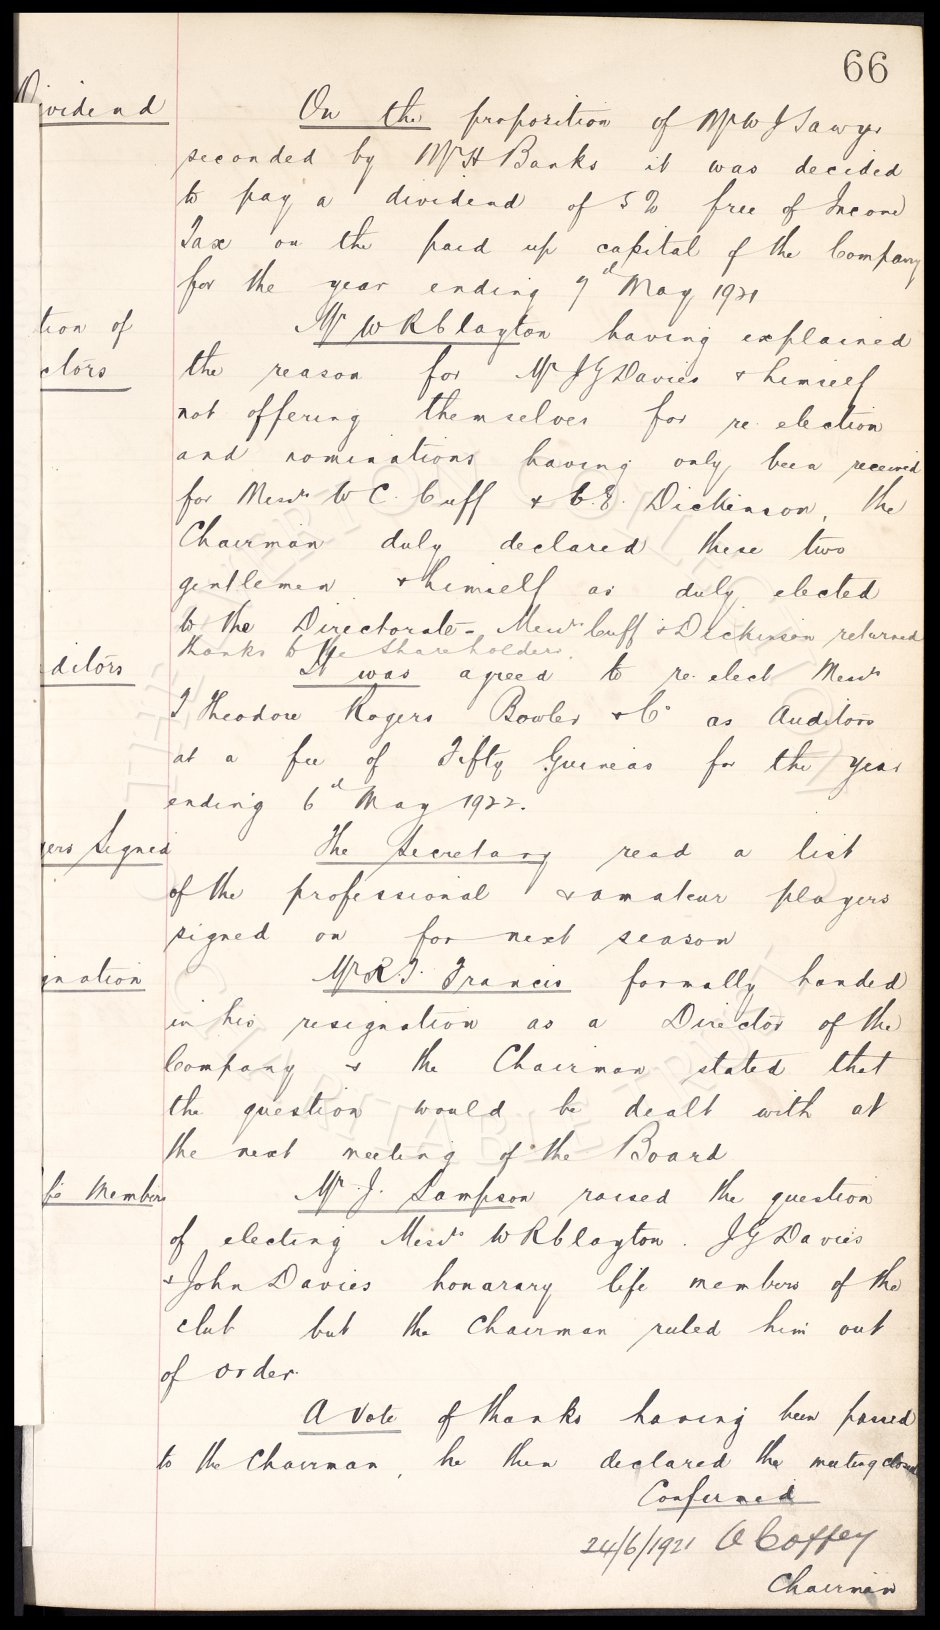 66
ividend
On the proposition of Mr W J Sawyer
seconded by Mr H Banks it was decided
to pay a dividend of 5% free of Income
Tax on the paid up capital of the Company
for the year ending 7th May 1921
tion of
ctors
Mr W R Clayton having explained
the reason for Mr J G Davies & himself
not offering themselves for re election
and nominations having only been received
for Messrs W C. Cuff & C. E. Dickinson, the
Chairman duly declared these two
gentlemen & himself as duly elected
to the Directorate - Messrs Cuff & Dickinson returned
thanks to the Shareholders
ditors
It was agreed to re-elect Messrs
T Theodore Rogers Bowler & Co as Auditors
at a fee of Fifty Guineas for the year
ending 6th May 1922.
yers Signed
The Secretary read a list
of the professional & amateur players
signed on for next season
gnation
Mr R T. Francis formally handed
in his resignation as a Director of the
Company & the Chairman stated that
the question would be dealt with at
the next meeting of the Board
fe Members
Mr. J. Sampson raised the question
of electing Messrs W R Clayton. J G Davies
& John Davies honarary life members of the
club but the Chairman ruled him out
of order.
A Vote of thanks having been passed
to the Chairman, he then declared the meeting closed
Confirmed
24/6/1921 A Coffey
Chairman